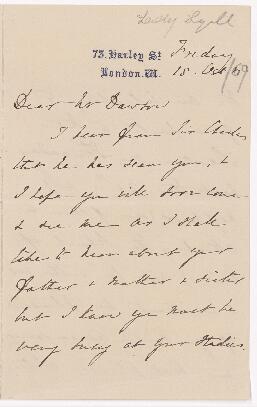 Lady Lyell
73. Harley St. Friday
London. W. 15. Oct /69
Dear Mr Dawson
I hear from Sir Charles
that he has seen you, &
I hope you will soon come
& see me as I shall
like to hear about your
father & mother & sister
but I know you must be
very busy at your studies.